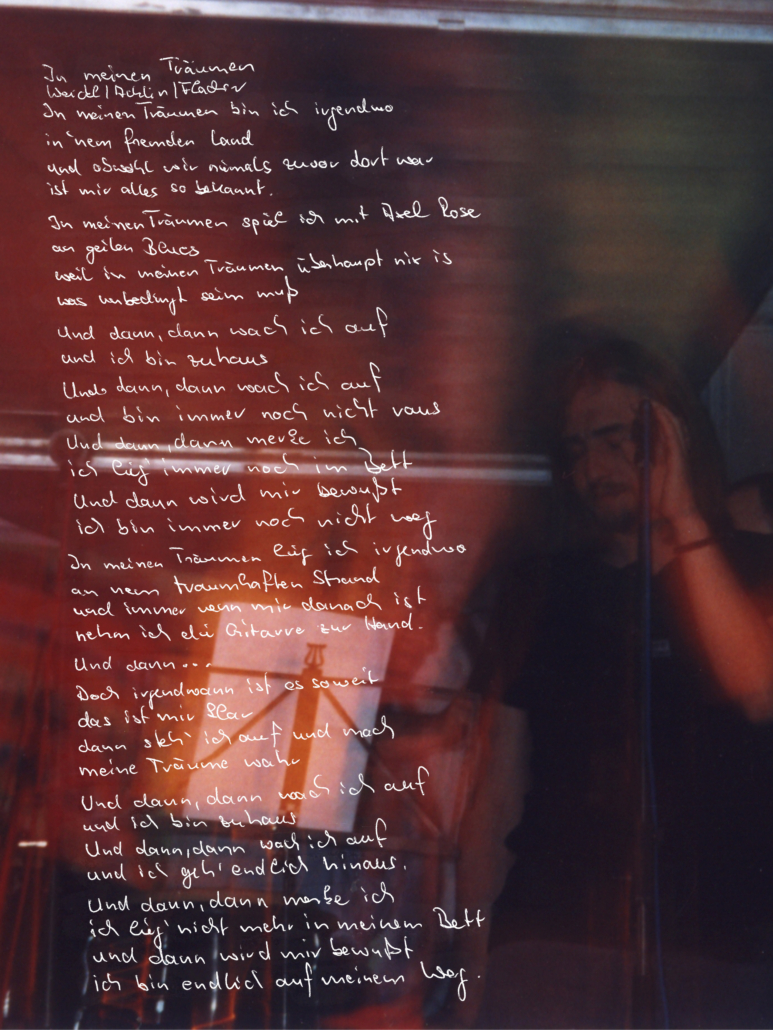 In meinen Träumen
Weickl/Achlin/Flader
In meinen Träumen bin ich irgendwo
in 'nem fremden Land
und obwohl wir niemals zuvor dort war
ist mir alles so bekannt.
In meinen Träumen spiel ich mit Axel Rose
an geilen Blues
weil in meinen Träumen überhaupt nix is
was unbedingt seim muß
Und dann, dann wach ich auf
und ich bin zuhaus
Und dann, dann wach ich auf
und bin immer noch nicht raus
Und dann, dann merke ich
ich lieg immer noch im Bett
Und dann wird mir bewußt
ich bin immer noch nicht weg
In meinen Träumen lieg ich irgendwo
an nem traumhaften Strand
und immer wenn mir danach ist
nehm ich die Gitarre zur Hand.
Und dann...
Doch irgendwann ist es soweit
das ist mir klar
dann steh' ich auf und mach
meine Träume wahr
Und dann, dann wach ich auf
und ich bin zuhaus
Und dann, dann wach ich auf
und ich geh' endlich hinaus.
Und dann, dann merke ich
ich lieg' nicht mehr in meinem Bett
und dann wird mir bewußt
ich bin endlich auf meinem Weg.